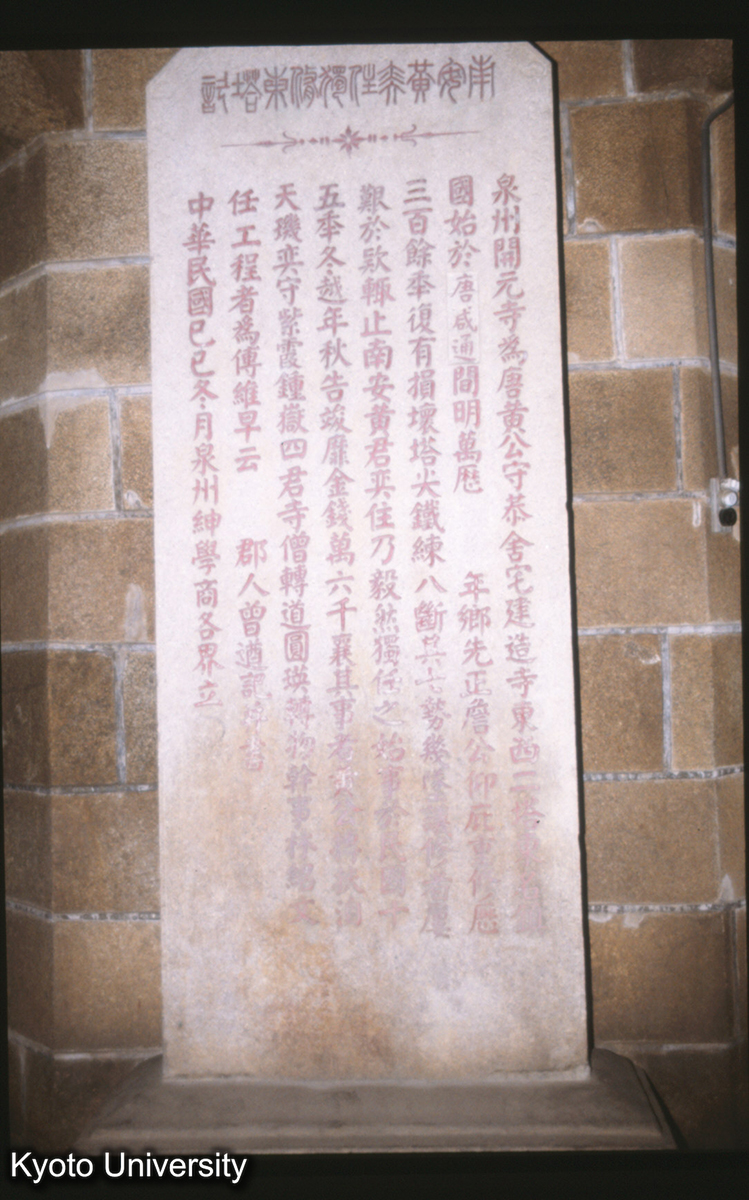 南安黃奕住獨修東塔記
泉州開元寺為唐黃公守恭舍宅建造寺東西二塔
國始於唐咸通間明萬歷 年鄉先正詹公仰庇重修歷
三百餘秊復有損壞塔尖鐵練八斷其七勢幾
艱於欵輒止南安黃君奕住乃毅然獨任之始事於民國十
五秊冬越年秋告竣靡金錢萬六千襄其事者
天璣奕守紫霞鍾嶽四君寺僧轉道圓瑛轉物幹事
任工程者為傅維早云 郡人曾遒記
中華民國己巳冬月泉州紳學商各界立
Kyoto University